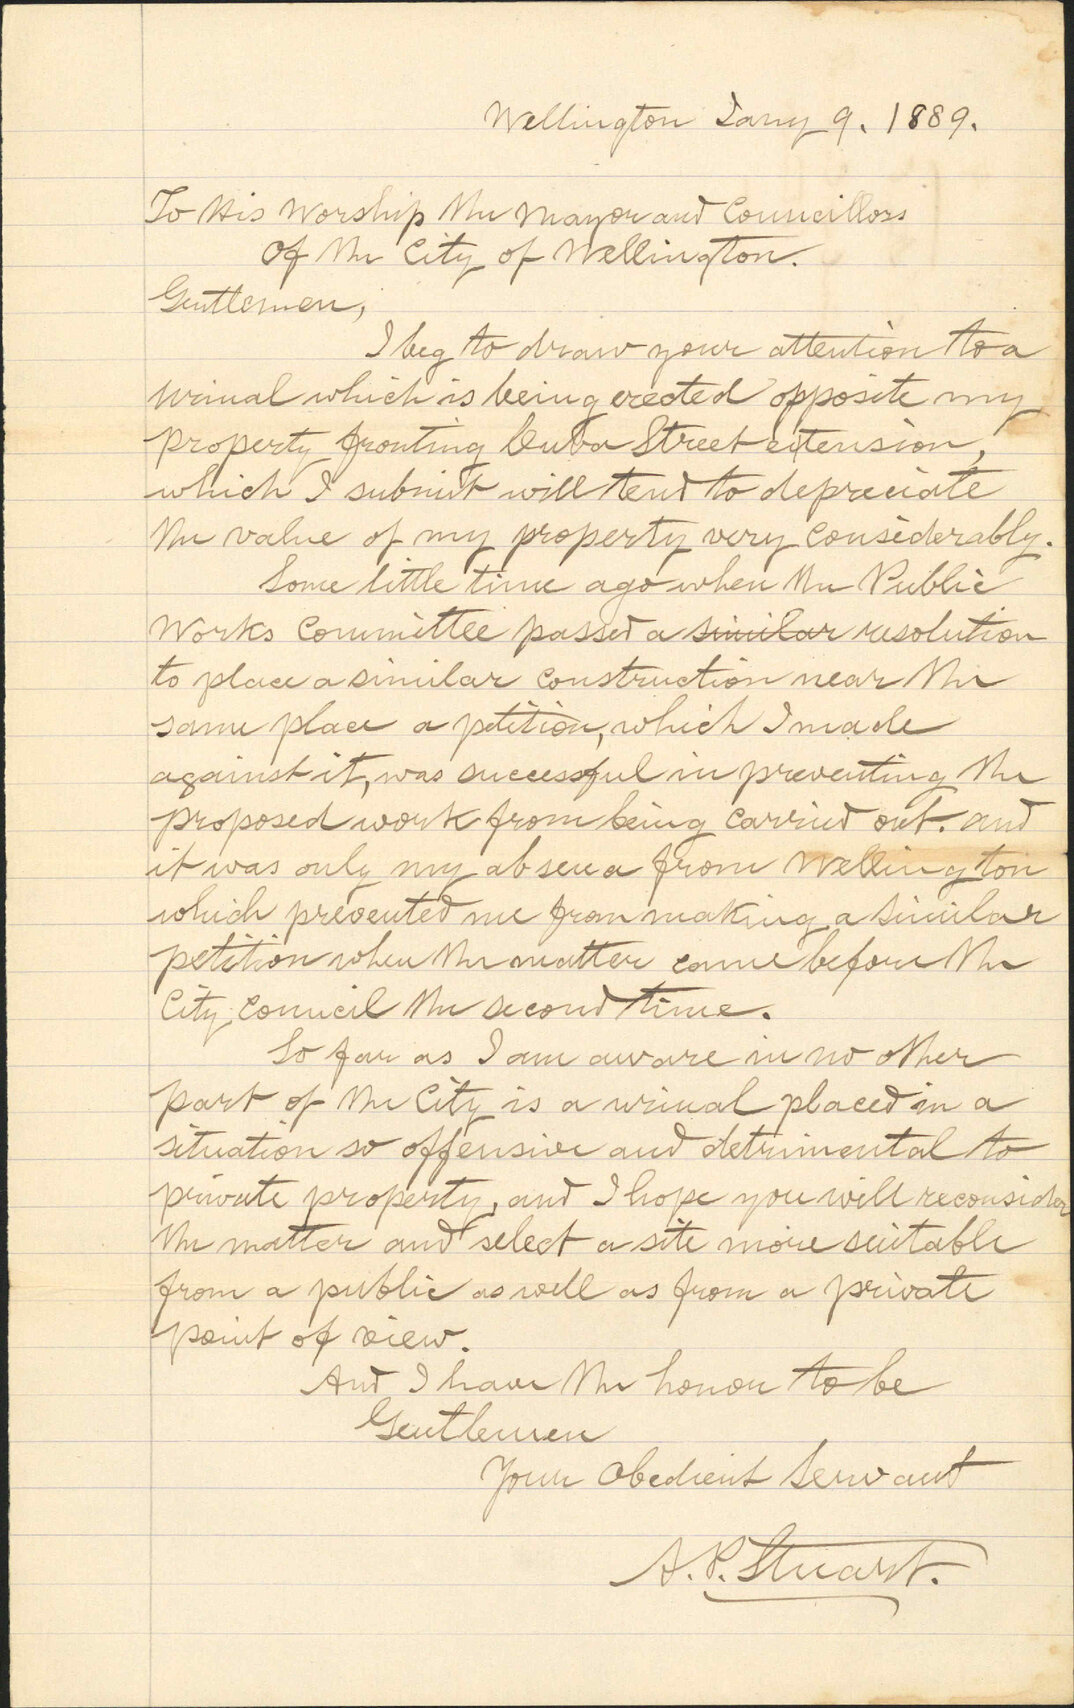 Wellington Jany 9. 1889.
To His Worship the Mayor and Councillors
Of the City of Wellington.
Gentlemen,
I beg to draw your attention to a
urinal which is being erected opposite my
property fronting Cuba Street extension,
which I submit will tend to depreciate
the value of my property very considerably.
Some little time ago when the Public
Works Committee passed a similar resolution
to place a similar construction near the
same place a petition, which I made
against it, was successful in preventing the
proposed work from being carried out. and
it was only my absence from Wellington
which prevented me from making a similar
petition when the matter came before the
City Council the second time.
So far as I am aware in no other
part of the City is a urinal placed in a
situation so offensive and detrimental to
private property, and I hope you will reconsider
the matter and select a site more suitable
from a public as well as from a private
point of view.
And I have the honor to be
Gentlemen
Your Obedient Servant
A. P. Stuart.